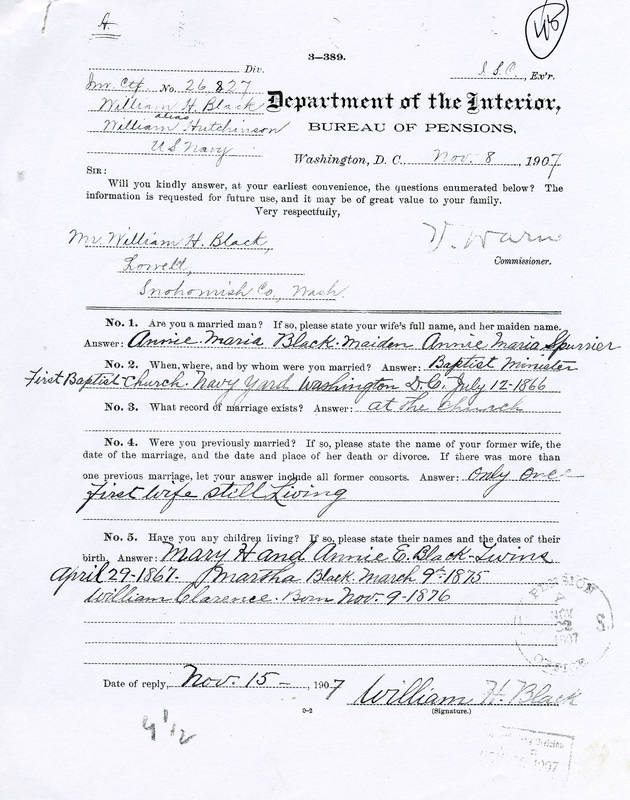 A.
3—389.
Div.
I. S. C., Ex'r.
Inv. Ctf. No. 26,827
William H. Black
alias
William Hutchinson
US Navy
Department of the Interior,
BUREAU OF PENSIONS,
Washington, D. C. Nov. 8, 1907
SIR:
Will you kindly answer, at your earliest convenience, the questions enumerated below? The
information is requested for future use, and it may be of great value to your family.
Very respectfully,
V. Warner
Commissioner.
Mr. William H. Black,
Lowell,
Snohomish Co., Wash.
No. 1. Are you a married man? If so, please state your wife's full name, and her maiden name.
Answer: Annie Maria Black. Maiden Annie Maria Spurrier
No. 2. When, where, and by whom were you married? Answer: Baptist Minister
First Baptist Church. Navy Yard Washington D.C. July 12-1866
No. 3. What record of marriage exists? Answer: at the Church
No. 4. Were you previously married? If so, please state the name of your former wife, the
date of the marriage, and the date and place of her death or divorce. If there was more than
one previous marriage, let your answer include all former consorts. Answer: only one
first wife still Living
No. 5. Have you any children living? If so, please state their names and the dates of their
birth. Answer: Mary H and Annie E. Black-Twins
April 29-1867. Martha Black. March 9th-1875
William Clarence. Born Nov. 9-1876
PENSION
NOV
22
1907
OFFICE
U. S.
Date of reply, Nov. 15 —, 1907
William H. Black
(Signature.)
9-2
9 1/2